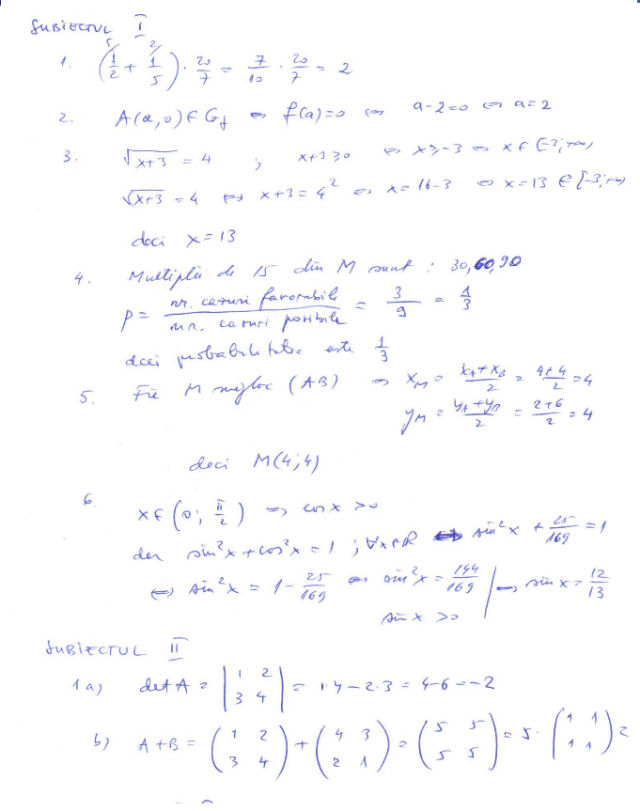 SUBIECTUL I
1. (1/2 + 1/5) · 20/7 = 7/10 · 20/7 = 2
2. A(a,0) ∈ Gf ⇔ f(a)=0 ⇔ a-2=0 ⇔ a=2
3. √(x+3) = 4 ; x+3≥0 ⇔ x≥-3 ⇔ x∈[-3;+∞)
√(x+3) = 4 ⇔ x+3=4² ⇔ x=16-3 ⇔ x=13 ∈ [-3;+∞)
deci x=13
4. Multiplii de 15 din M sunt : 30,60,90
P = nr. cazuri favorabile / nr. cazuri posibile = 3/9 = 1/3
deci probabilitatea este 1/3
5. Fie M mijloc (AB) ⇒ xM = (xA+xB)/2 = (4+4)/2 = 4
yM = (yA+yB)/2 = (2+6)/2 = 4
deci M(4;4)
6. x∈(0; π/2) ⇒ cos x >0
dar sin²x+cos²x=1 ; ∀x∈R ⇔ sin²x + 25/169 = 1
⇔ sin²x = 1- 25/169 ⇔ sin²x = 144/169 | ⇒ sin x = 12/13
sin x >0
SUBIECTUL II
1a) det A = |1 2; 3 4| = 1·4-2·3 = 4-6=-2
b) A+B = (1 2; 3 4) + (4 3; 2 1) = (5 5; 5 5) = 5· (1 1; 1 1) =